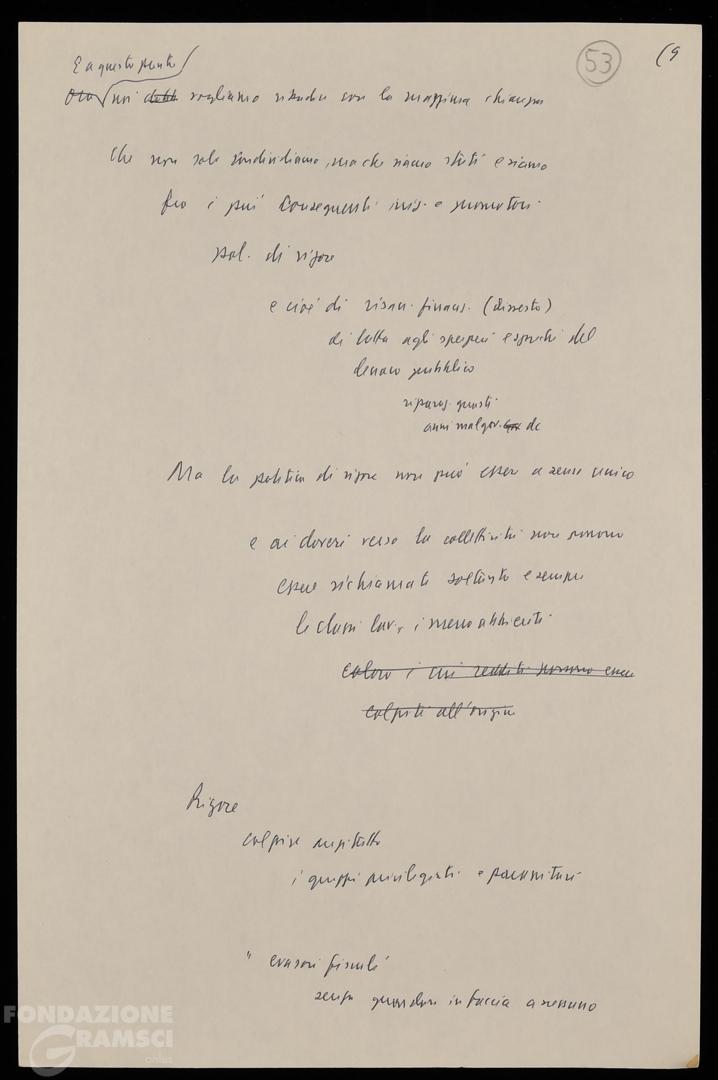 E a questo punto
53
(9
Ora noi dobb vogliamo ribadire con la massima chiarezza
che non solo condividiamo, ma che siamo stati e siamo
fra i più conseguenti e promotori
pol. di rigore
e cioè di risan. finanz. (dissesto)
di lotta agli sperperi e sprechi del
denaro pubblico
riparaz. guasti
anni malgov. dc
Ma la politica di rigore non può essere a senso unico
e ai doveri verso la collettività non possono
essere richiamati soltanto e sempre
le classi lav., i meno abbienti
coloro i cui redditi possono essere
colpiti all'origine
Rigore
colpire anzitutto
i gruppi privilegiati e parassitari
" evasori fiscali
senza guardare in faccia a nessuno
FONDAZIONE
GRAMSCI
onlus